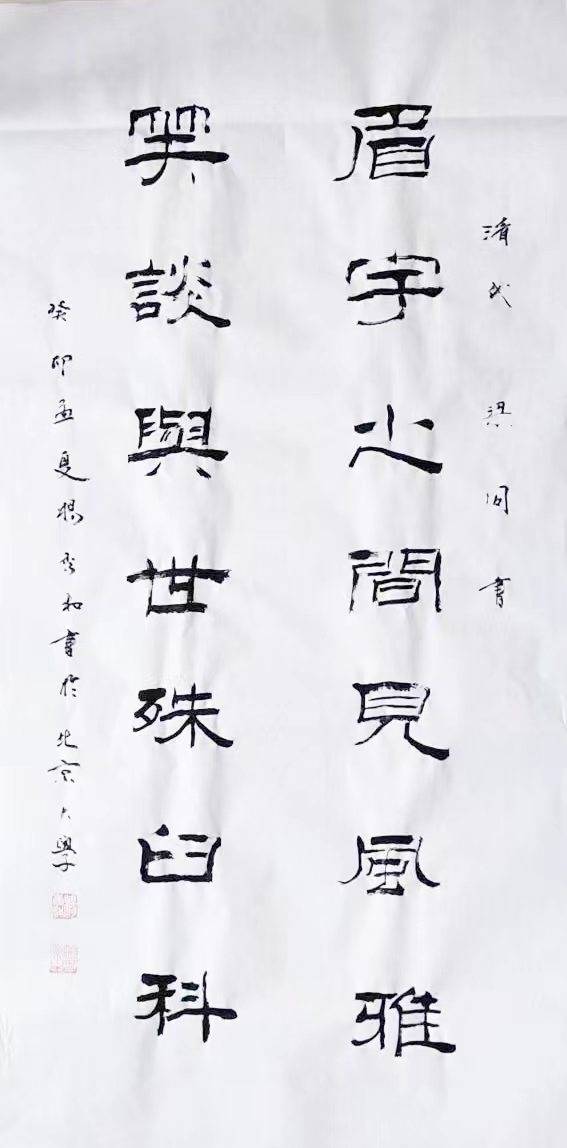 清代 梁同書
眉宇之間見風雅
笑談與世殊臼科
癸卯孟夏楊秀和書於北京大學